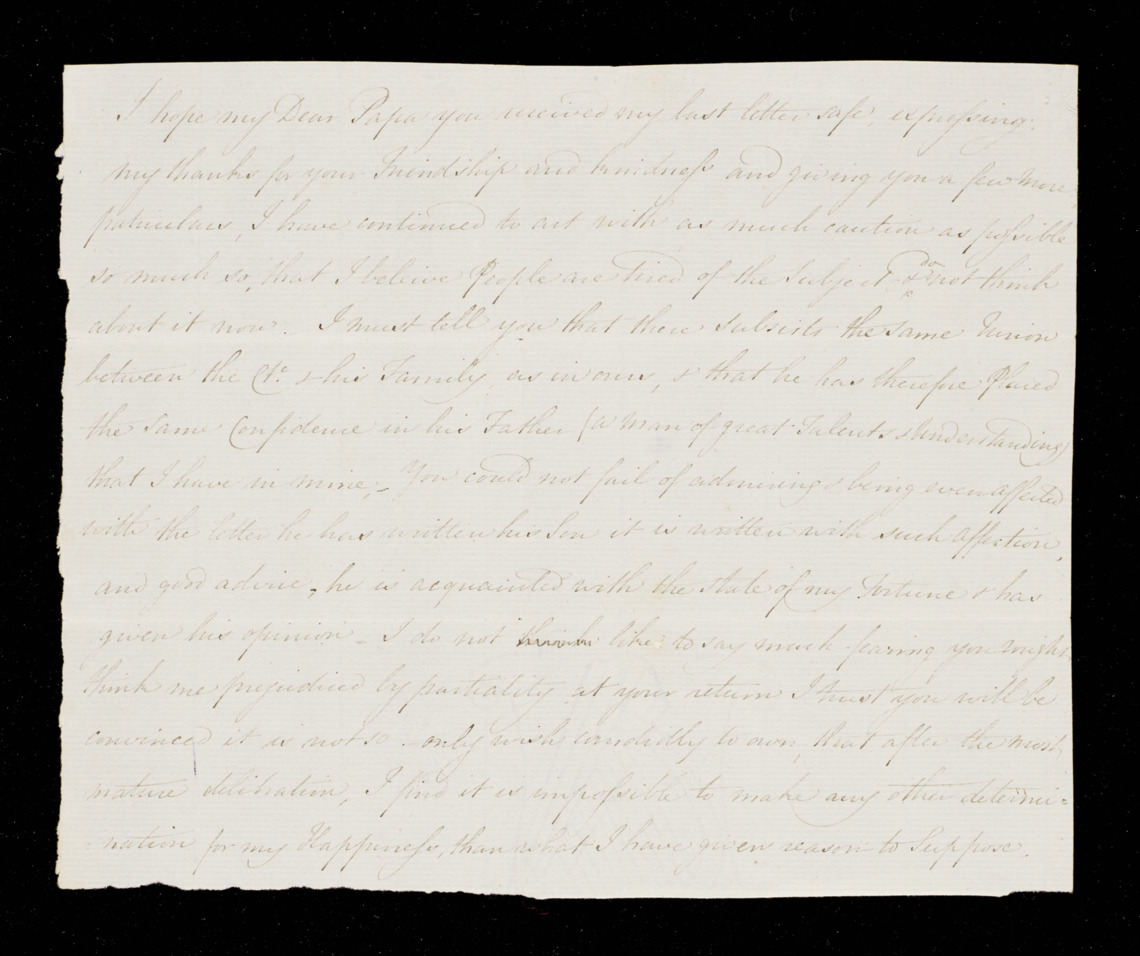 I hope my Dear Papa you received my last letter safe, expressing
my thanks for your Friendship and kindness and giving you a few more
patriculars, I have continued to act with as much caution as possible
so much so, that I believe People are tired of the subject & do not think
about it now. I must tell you that there subsists the same Union
between the Ct. & his Family, as in ours, & that he has therefore placed
the same Confidence in his Father (a Man of great Talents & Understanding)
that I have in mine,- You could not fail of admiring & being even affected
with the letter he has written his Son it is written with such affection,
and good advice, he is acquainted with the state of my Fortune & has
given his opinion - I do not think like to say much fearing you might
think me prejudiced by partiality at your return I trust you will be
convinced it is not so. only wish candidly to own, that after the most
mature delibration, I find it is impossible to make any other determi=
nation for my Happiness, than what I have given reason to Suppose.